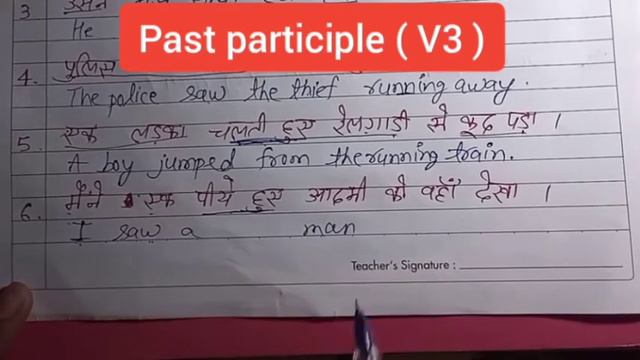 Past participle ( V3 )
3
He
4. पुलिस
The police saw the thief running away.
5. एक लड़का चलती हुए रेलगाड़ी से कूद पड़ा ।
A boy jumped from the running train.
6. मैंने एक पीये हुए आदमी को वहाँ देखा ।
I saw a man
Teacher's Signature :